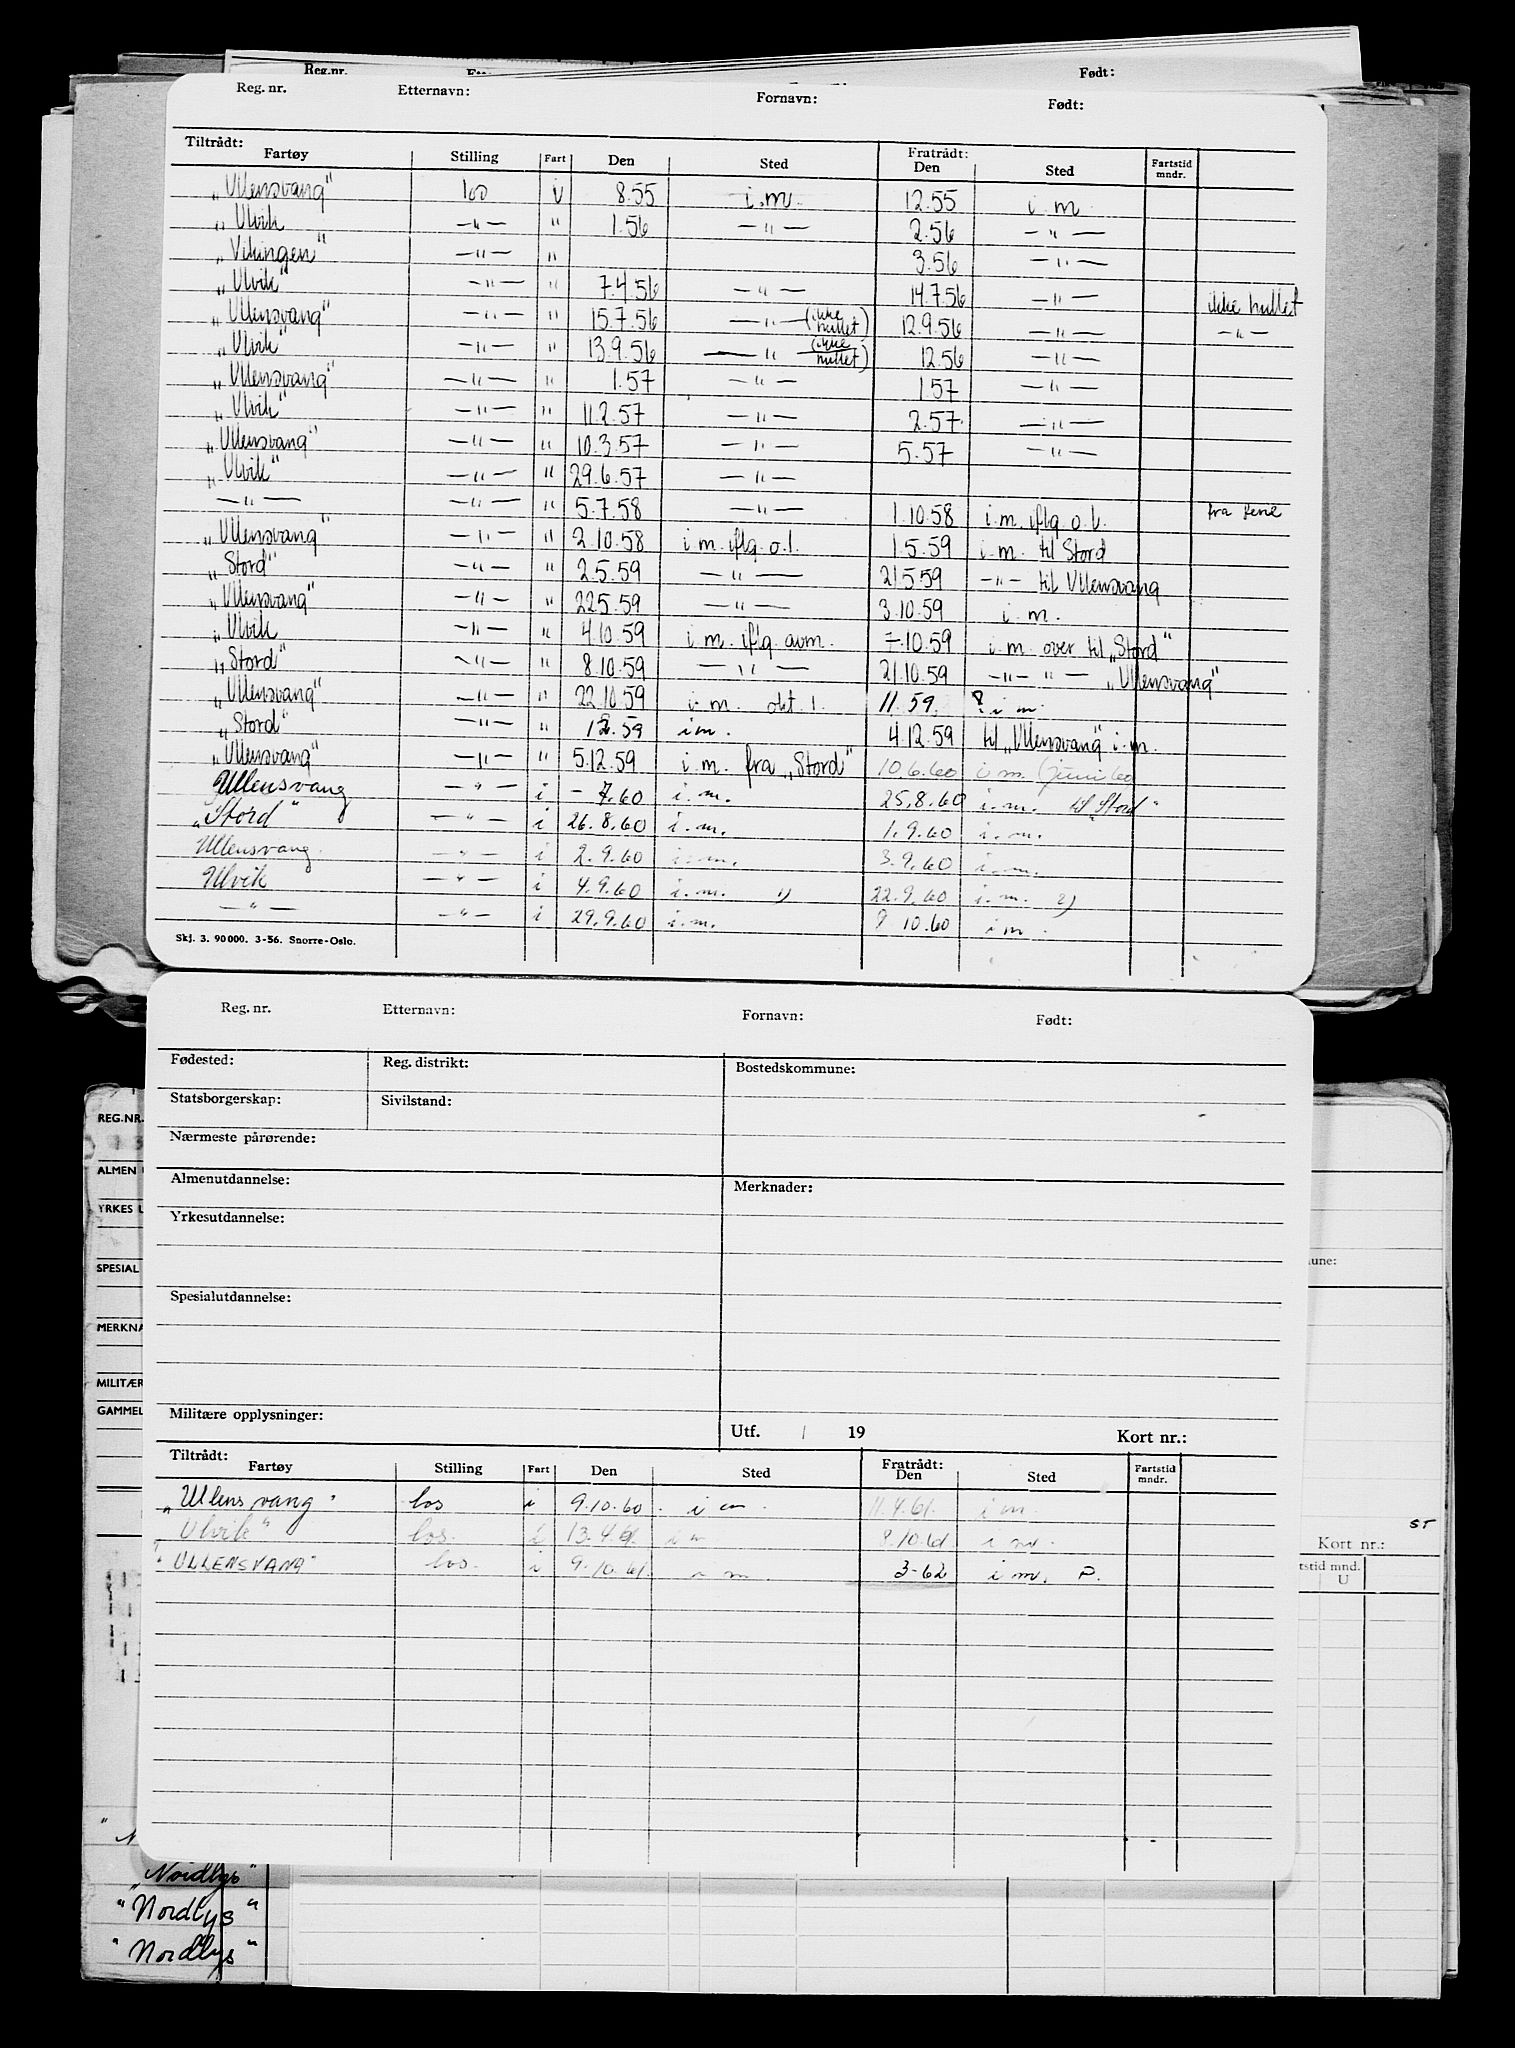 Reg.nr. Født:
Reg. nr. Etternavn: Fornavn: Født:
Tiltrådt: Fratrådt:
Fartøy Stilling Fart Den Sted Den Sted Fartstid mndr.
„Ullensvang“ i 8.55 i.m. 12.55 i.m.
„Ulvik — " — " 1.56 — " — 2.56 — " —
„Vikingen“ — " — " 3.56 — " —
„Ulvik“ — " — " 7.4.56 — " — 14.7.56 — " — ikke hullet
„Ullensvang“ — " — " 15.7.56 — " — (ikke hullet) 12.9.56 — " — — " —
„Ulvik“ — " — " 13.9.56 — " — (ikke hullet) 12.56 — " —
„Ullensvang“ — " — " 1.57 — " — 1.57 — " —
„Ulvik“ — " — " 11.2.57 — " — 2.57. — " —
„Ullensvang“ — " — " 10.3.57 — " — 5.57 — " —
„Ulvik“ — " — " 29.6.57 — " —
— " — — " — " 5.7.58 — " — 1.10.58 i.m. iflg. o.l. fra ferie
„Ullensvang“ — " — " 2.10.58 i.m. iflg. o.l. 1.5.59 i.m. til Stord
„Stord“ — " — " 2.5.59 — " — 21.5.59 — " — til Ullensvang
„Ullensvang“ — " — " 22.5.59 — " — 3.10.59 i.m.
„Ulvik — " — " 4.10.59 i.m. iflg. avm. 7.10.59 i.m. over til „Stord“
„Stord“ — " — " 8.10.59 — " — 21.10.59 — " — " — „Ullensvang“
„Ullensvang“ — " — " 22.10.59 i.m. okt. l. 11.59. ? i m.
„Stord“ — " — " 12.59 i m. 4.12.59 til „Ullensvang“ i.m.
„Ullensvang“ — " — " 5.12.59 i.m. fra „Stord“ 10.6.60 i m (juni 60
Ullensvang — " — i – 7.60 i.m. 25.8.60 i.m. til „Stord“
„Stord“ — " — i 26.8.60 i.m. 1.9.60 i.m.
Ullensvang — " — i 2.9.60 i.m. 3.9.60 i.m.
Ulvik — " — i 4.9.60 i.m. 22.9.60 i.m.
— " — — " — i 29.9.60 i.m. 10.60 i m
Skj. 3. 90 000. 3-56. Snorre-Oslo.
Reg. nr. Etternavn: Fornavn: Født:
Fødested: Reg. distrikt: Bostedskommune:
Statsborgerskap: Sivilstand:
Nærmeste pårørende:
Almenutdannelse: Merknader:
Yrkesutdannelse:
Spesialutdannelse:
Militære opplysninger:
Utf. / 19 Kort nr.:
Tiltrådt: Fratrådt:
Fartøy Stilling Fart Den Sted Den Sted Fartstid mndr.
„Ullensvang" los i 9.10.60. i m. 11.4.61. i m.
Ulvik" los. i 13.4.61. i m 8.10.61 i m.
"ULLENSVANG" los. i 9.10.61. i m. 3-62 i m. P.
REG.NR.
ALMEN U
YRKES U
SPESIAL
MERKNA
MILITÆR
GAMMEL
mune:
ST
Kort nr.:
tstid mnd.
U
" N
„Nordlys"
"Nordlys"
"Nordlys"